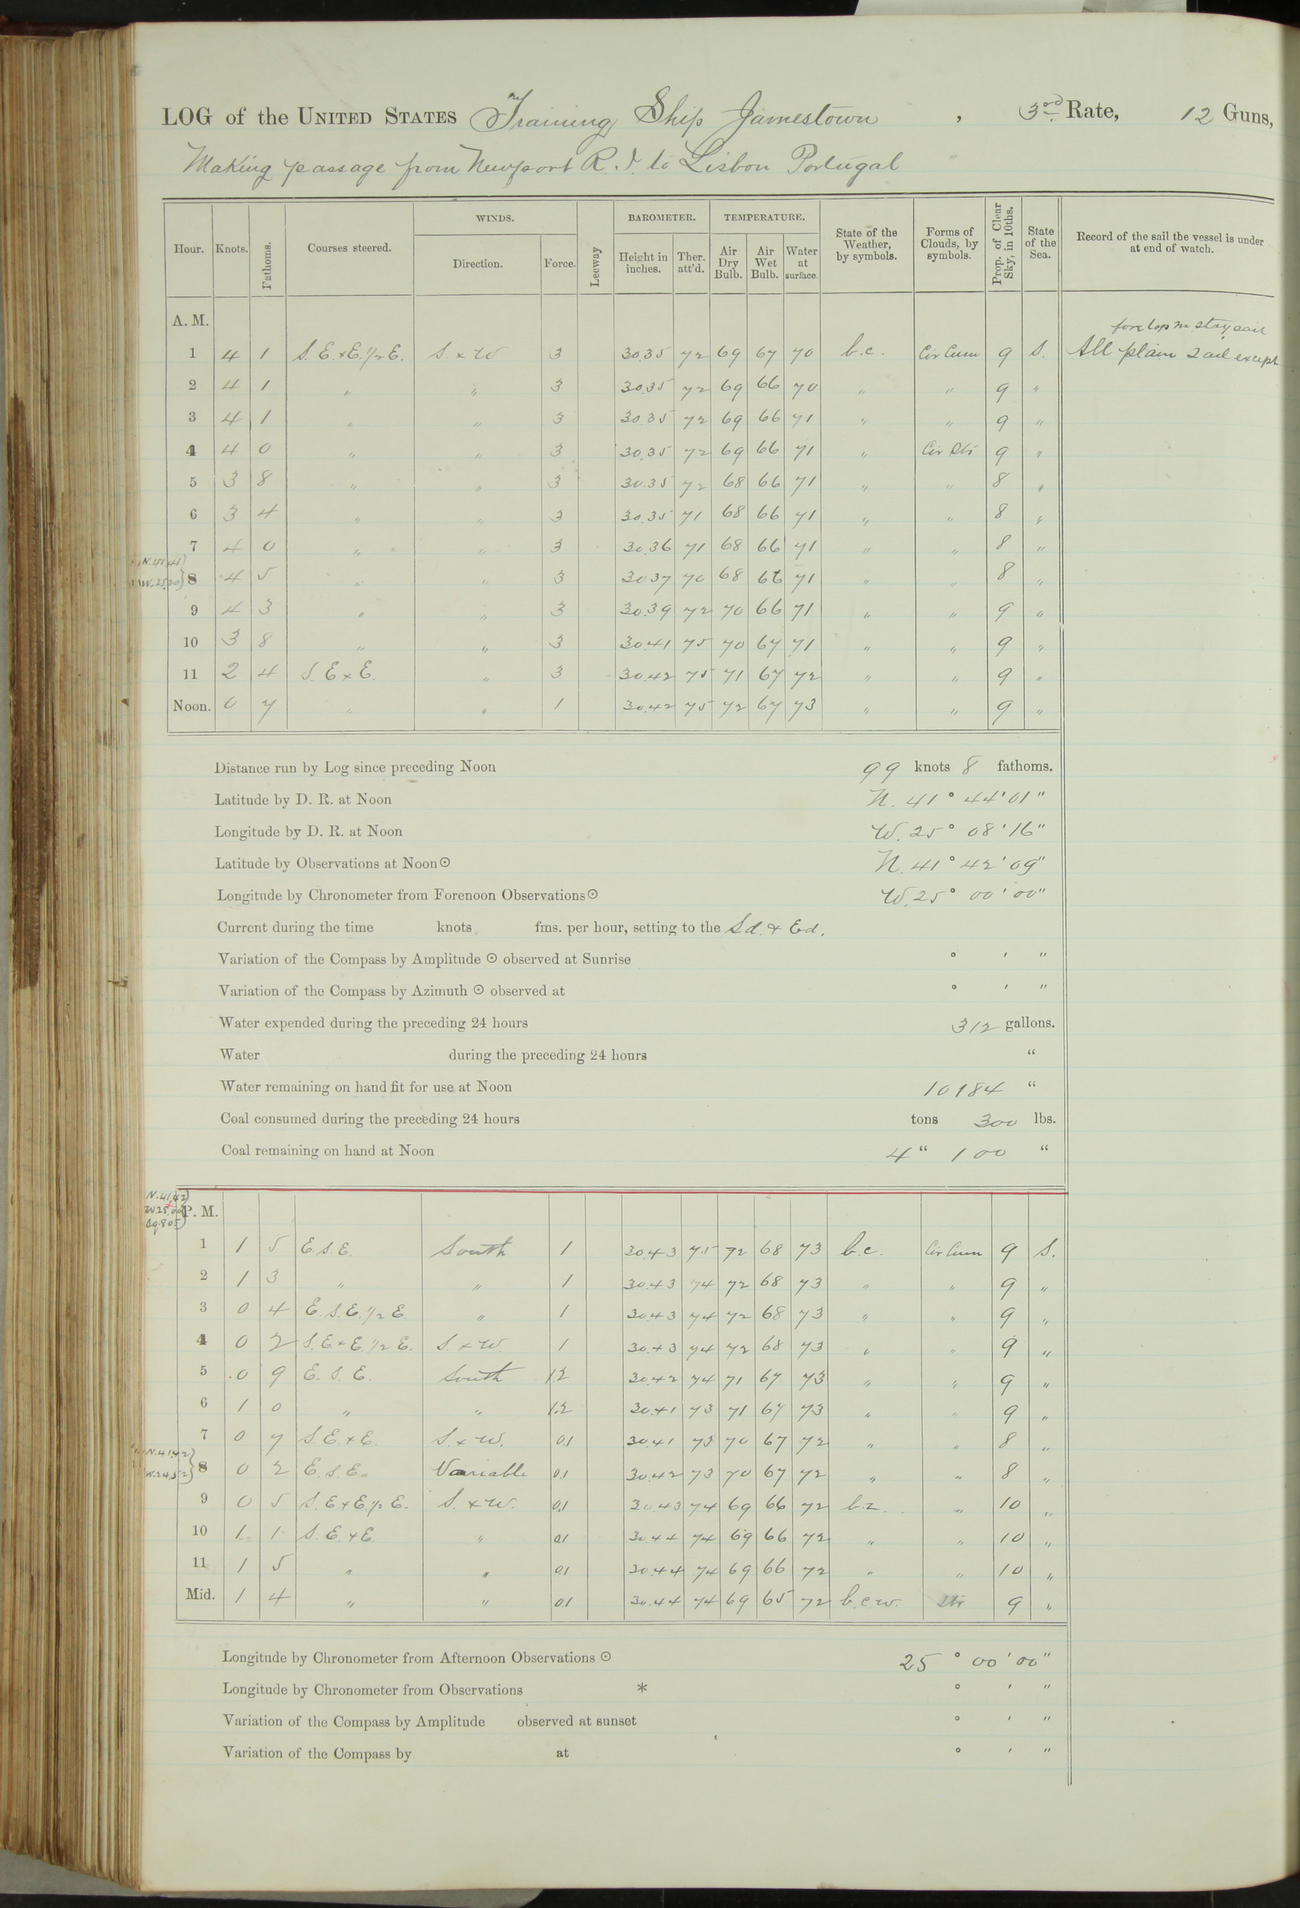 LOG of the UNITED STATES Training Ship Jamestown, 3rd Rate, 12 Guns,
Making passage from Newport R.I. to Lisbon Portugal
Hour. Knots. Fathoms. Courses steered. WINDS. Direction. Force. Leeway BAROMETER. Height in inches. Ther. att'd. TEMPERATURE. Air Dry Bulb. Air Wet Bulb. Water at surface. State of the Weather, by symbols. Forms of Clouds, by symbols. Prop. of Clear Sky, in 10ths. State of the Sea. Record of the sail the vessel is under at end of watch.
A. M.
fore topm stay sail
1 4 1 S.E.xE.1/2E. S.xW 3 30.35 72 69 67 70 b.c. Cir Cum 9 S. All plain Sail except
2 4 1 " " 3 30.35 72 69 66 70 " " 9 "
3 4 1 " " 3 30.35 72 69 66 71 " " 9 "
4 4 0 " " 3 30.35 72 69 66 71 " Cir Str 9 "
5 3 8 " " 3 30.35 72 68 66 71 " " 8 "
6 3 4 " " 3 30.35 71 68 66 71 " " 8 "
7 4 0 " " 3 30.36 71 68 66 71 " " 8 "
8 4 5 " " 3 30.37 70 68 66 71 " " 8 "
9 4 3 " " 3 30.39 72 70 66 71 " " 9 "
10 3 8 " " 3 30.41 75 70 67 71 " " 9 "
11 2 4 S.E.xE. " 3 30.42 75 71 67 72 " " 9 "
Noon. 0 7 " " 1 30.42 75 72 67 73 " " 9 "
Distance run by Log since preceding Noon 99 knots 8 fathoms.
Latitude by D. R. at Noon N. 41° 44' 01"
Longitude by D. R. at Noon W. 25° 08' 16"
Latitude by Observations at Noon ☉ N. 41° 42' 09"
Longitude by Chronometer from Forenoon Observations ☉ W. 25° 00' 00"
Current during the time knots fms. per hour, setting to the Sd. & Ed.
Variation of the Compass by Amplitude ☉ observed at Sunrise ° ' "
Variation of the Compass by Azimuth ☉ observed at ° ' "
Water expended during the preceding 24 hours 312 gallons.
Water during the preceding 24 hours "
Water remaining on hand fit for use at Noon 10184 "
Coal consumed during the preceding 24 hours tons 300 lbs.
Coal remaining on hand at Noon 4 " 100 "
N.41,42
W25,00
P. M.
1 1 5 E.S.E. South 1 30.43 75 72 68 73 b.c. Cir Cum 9 S.
2 1 3 " " 1 30.43 74 72 68 73 " " 9 "
3 0 4 E.S.E.1/2E. " 1 30.43 74 72 68 73 " " 9 "
4 0 2 S.E.xE.1/2E. S.xW. 1 30.43 74 72 68 73 " " 9 "
5 0 9 E.S.E. South 1.2 30.42 74 71 67 73 " " 9 "
6 1 0 " " 1.2 30.41 73 71 67 73 " " 9 "
7 0 7 S.E.xE. S.xW. 0.1 30.41 73 70 67 72 " " 8 "
N.41,42
W.24,52
8 0 2 E.S.E. Variable 0.1 30.42 73 70 67 72 " " 8 "
9 0 5 S.E.xE.1/2E. S.xW. 0.1 30.43 74 69 66 72 b.z. " 10 "
10 1 1 S.E.xE. " 0.1 30.44 74 69 66 72 " " 10 "
11 1 5 " " 0.1 30.44 74 69 66 72 " " 10 "
Mid. 1 4 " " 0.1 30.44 74 69 65 72 b.c.w. Str 9 "
Longitude by Chronometer from Afternoon Observations ☉ 25° 00' 00"
Longitude by Chronometer from Observations * ° ' "
Variation of the Compass by Amplitude observed at sunset ° ' "
Variation of the Compass by at ° ' "